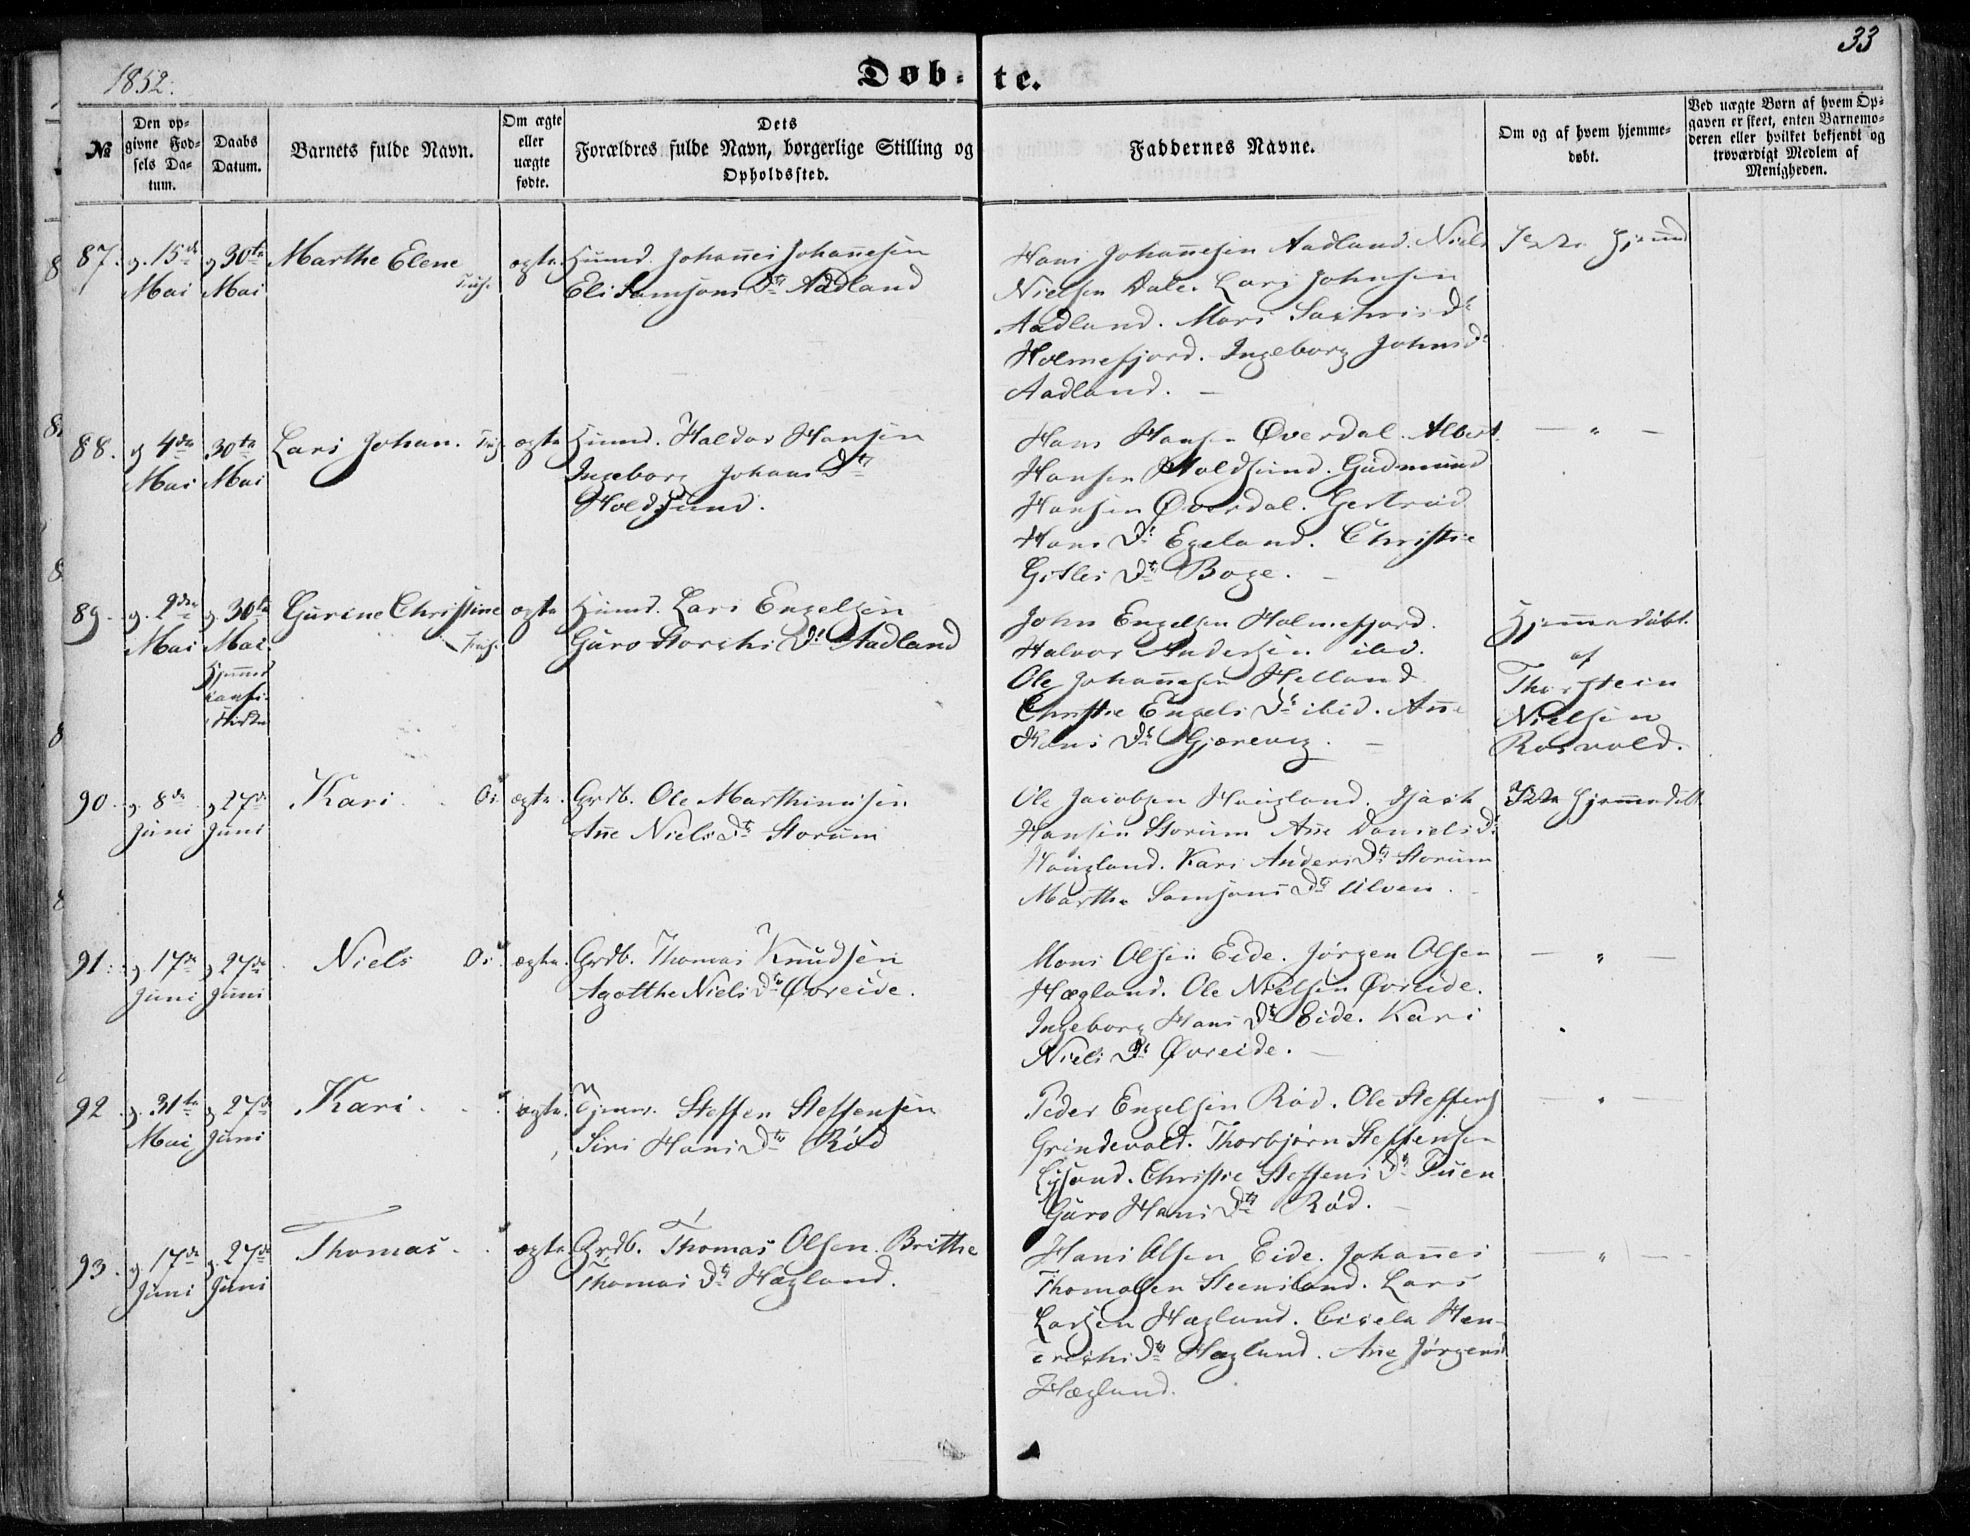 33
1852.
Døb- te.
№
Den op-
givne Fød-
sels Da-
tum.
Daabs
Datum.
Barnets fulde Navn.
Om ægte
eller
uægte
fødte.
Dets
Forældres fulde Navn, borgerlige Stilling og
Opholdssted.
Faddernes Navne.
Om og af hvem hjemme-
døbt.
Ved uægte Børn af hvem Op-
gaven er skeet, enten Barnemo-
deren eller hvilket bekjendt og
troværdigt Medlem af
Menigheden.
87. g. 15de g 30te Marthe Elene ægte Huusmd. Johannes Johannesen
Mai Mai Fuse Eli Samsons Dtr Aadland
Hans Johannesen Aadland. Niels
Nielsen Dale. Lars Johnsen
Aadland. Mari Dr
Holmefjord. Ingeborg Johns Dr
Aadland. —
Ikke Hjemmd
88. g 4de 30te Lars Johan. Fus. ægte Huusmd. Haldor Hansen
Mai Mai Ingeborg Johans Dtr
Holdsund.
Hans Hansen Øverdal. Albert
Hansen Holdsund. Gudmund
Hansen Øverdal. Gertrud
Hans Dr Egeland. Christie
Gitles Dtr Boge. —
— " —
89. g. 2den g. 30te Gurine Christine ægte Huusmd. Lars Engelsen
Mai Mai. Fus. Guro Dr Aadland
Hjemmed
John Engelsen Holmefjord.
Halvor Andersen ibid.
Ole Johannesen Helland
Christie Engels Dr ibid. Anne
Hans Dr Gjerevig. —
Hjemmedøbt.
af
Thorstein
Nielsen
Rosvold.
90. g. 8de g 27de Kari. Os ægte. Grdb. Ole Marthinusen
Juni Juni Ane Niels Dtr Storum
Ole Jacobsen Haugland.
Hansen Storum Ane Daniels Dr
Haugland. Kari Anders Dtr Storum
Marthe Samsons Dtr Ulven.
Ikke Hjemmedøbt
91. g. 17de g 27de Niels Os. ægte. Grdb. Thomas Knudsen
Juni Juni Agatthe Niels Dtr Øvreide.
Mons Olsen Eide. Jørgen Olsen
Hægland. Ole Nielsen Øvreide.
Ingeborg Hans Dtr Eide. Kari
Niels Dr Øvreide. —
— " —
92. g. 31te g 27de Kari. ægte. Steffen Steffensen
Mai Juni Siri Hans Dtr Rød
Peder Engelsen Rød. Ole Steffens
Grindevold. Thorbjørn Steffensen
Lysand. Christie Steffens Dtr Tuen
Guro Hans Dtr Rød. —
— " —
93. g. 17de g. 27de Thomas. ægte. Grdb. Thomas Olsen. Brithe
Juni Juni Thomas Dtr Hægland.
Hans Olsen Eide. Johannes
Thomasen Steensland. Lars
Larsen Hægland. Cisela Hen-
Dtr Hægland. Ane Jørgens
Hægland.
— " —